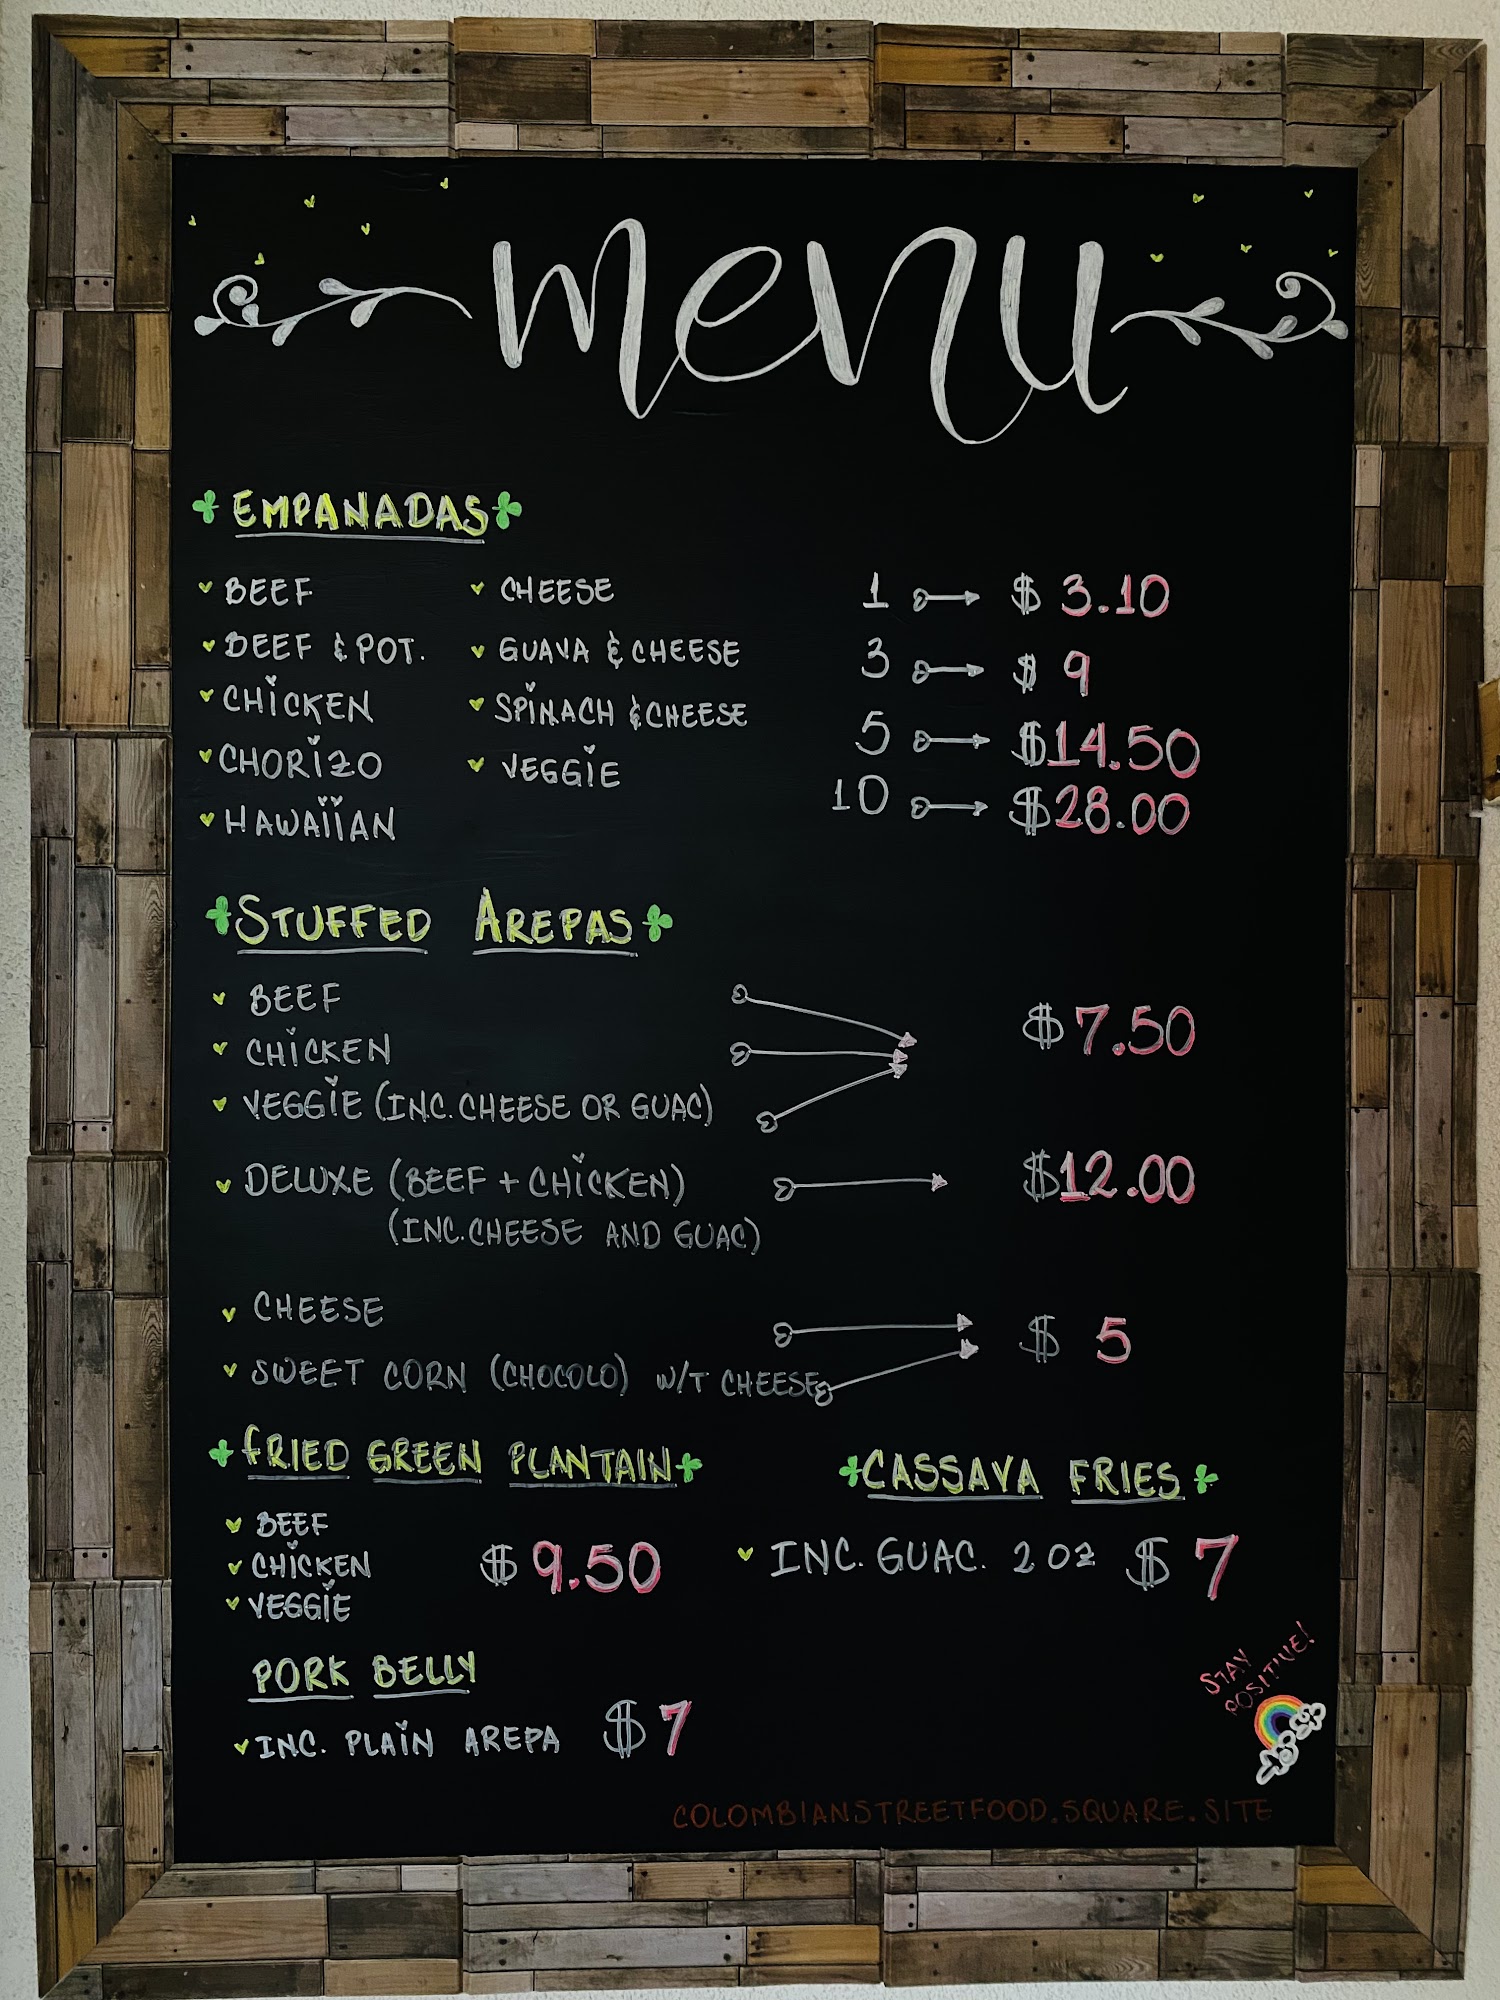 menu
EMPANADAS
BEEF
BEEF & POT.
CHICKEN
CHORIZO
HAWAIIAN
CHEESE
GUAVA & CHEESE
SPINACH & CHEESE
VEGGIE
1 $ 3.10
3 $ 9
5 $14.50
10 $28.00
STUFFED AREPAS
BEEF
CHICKEN
VEGGIE (INC. CHEESE OR GUAC)
$ 7.50
DELUXE (BEEF + CHICKEN) $12.00
(INC. CHEESE AND GUAC)
CHEESE
SWEET CORN (CHOCOLO) W/T CHEESE
$ 5
FRIED GREEN PLANTAIN
BEEF
CHICKEN
VEGGIE
$ 9.50
CASSAVA FRIES
INC. GUAC. 2 OZ $ 7
PORK BELLY
INC. PLAIN AREPA $ 7
STAY
POSITIVE!
COLOMBIANSTREETFOOD.SQUARE.SITE